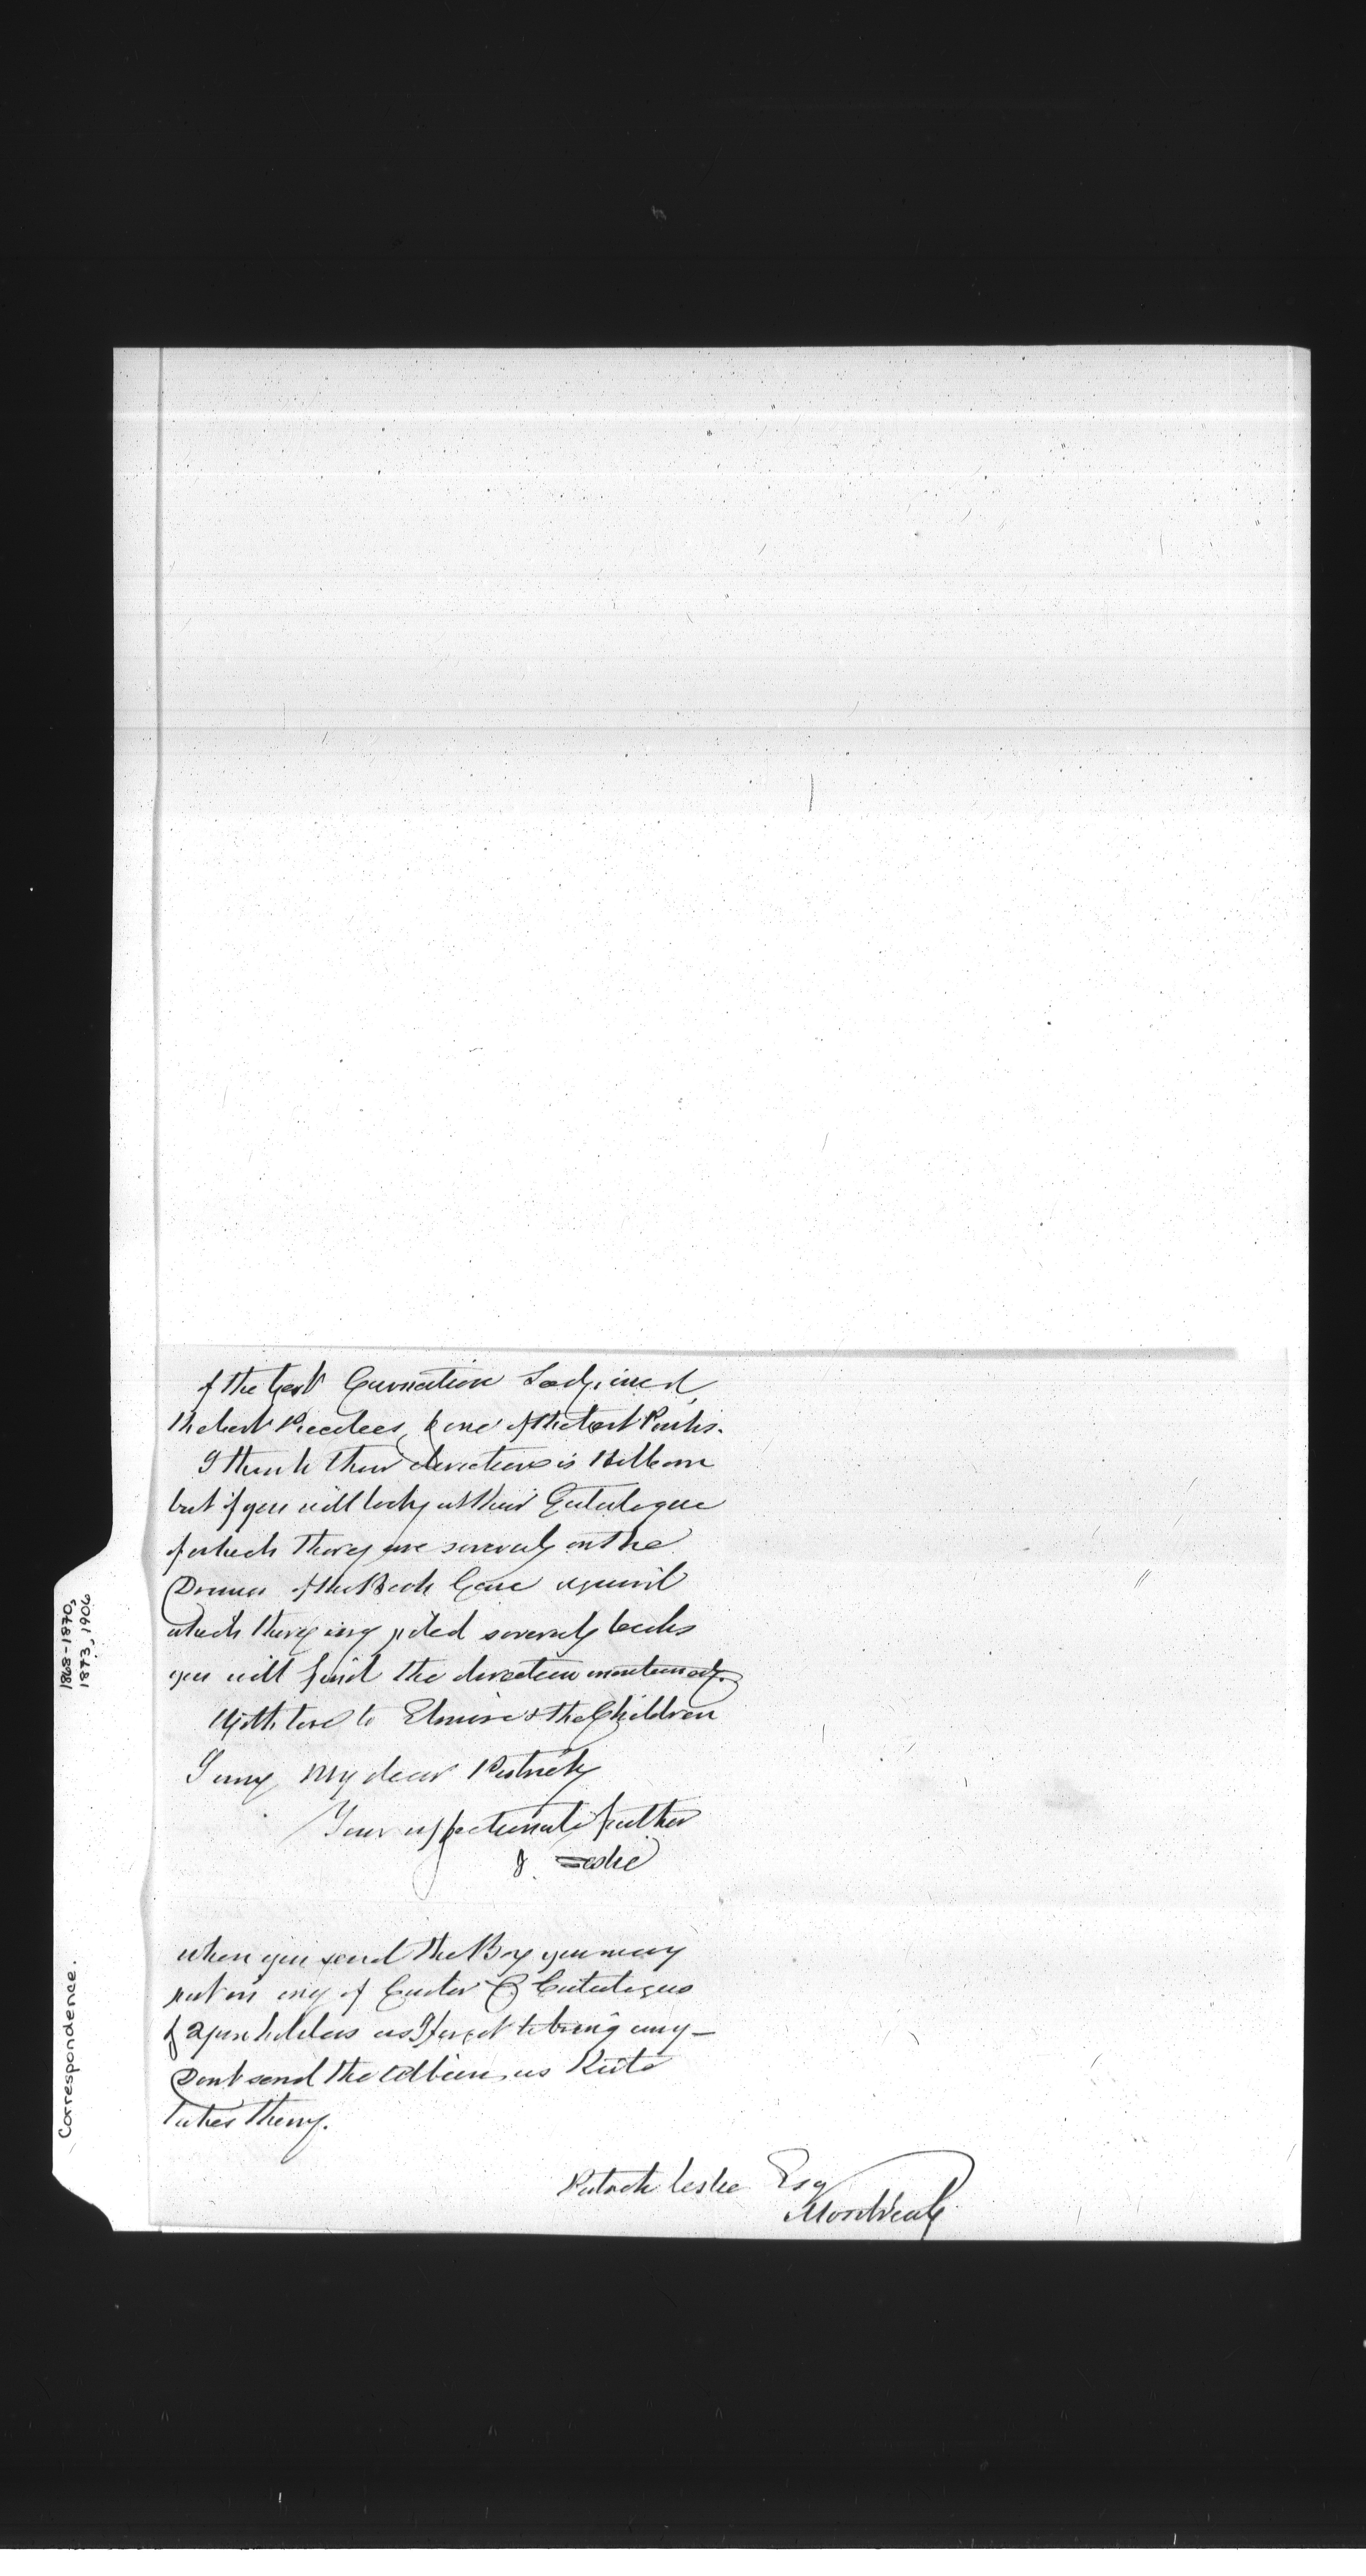 of the best Carnation
the best Picotees, & one of the best Pinks.
I think their direction is Holborn
but if you will look at their Catalogue
of which there are several on the
Drawer of the Book Case against
which there are piled several books
you will find the direction mentioned.
With love to Elmire & the Children
I am, My dear Patrick
Your affectionate father
J. Leslie
when you send the Box you may
put in any of Carter & Co Catalogues
& 2 penholders as I forgot to bring any —
Dont send the Albion, as Kate
takes them.
Patrick Leslie Esq
Montreal
Correspondence.
1868-1870,
1873, 1906